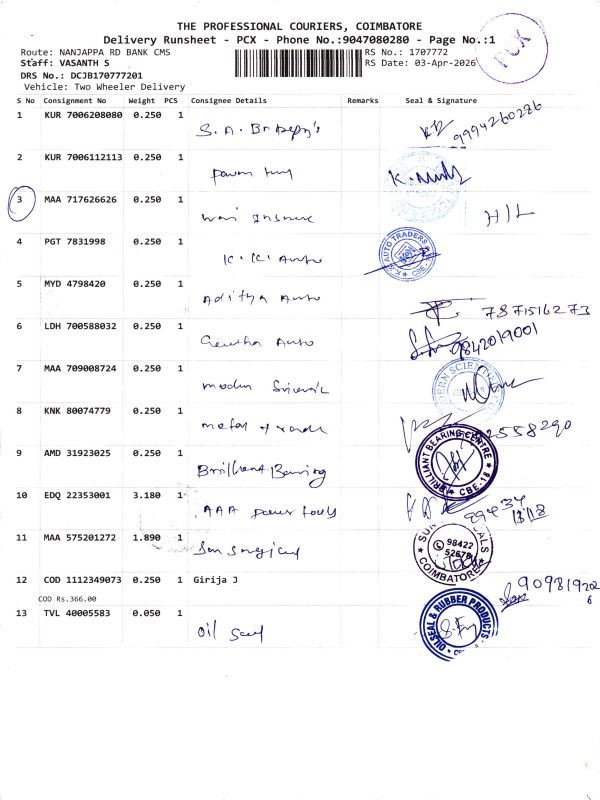 THE PROFESSIONAL COURIERS, COIMBATORE
Delivery Runsheet - PCX - Phone No.:9047080280 - Page No.:1
PCX
Route: NANJAPPA RD BANK CMS
RS No.: 1707772
Staff: VASANTH S
RS Date: 03-Apr-2026
DRS No.: DCJB170777201
Vehicle: Two Wheeler Delivery
S No Consignment No Weight PCS Consignee Details Remarks Seal & Signature
1 KUR 7006208080 0.250 1 S. A. 9994260286
2 KUR 7006112113 0.250 1
3 MAA 717626626 0.250 1 H/L
4 PGT 7831998 0.250 1 K. K. Auto AUTO TRADERS CBE
5 MYD 4798420 0.250 1 Aditya Auto 7871516273
6 LDH 700588032 0.250 1 Auto 9842019001
7 MAA 709008724 0.250 1 Modern
8 KNK 80074779 0.250 1 Metal 2558290
9 AMD 31923025 0.250 1 Brilliant Bearing BRILLIANT BEARING CENTRE CBE-18
10 EDQ 22353001 3.180 1 AAA Power tools 99434
11 MAA 575201272 1.890 1 Sun Surgical 98422 52678 COIMBATORE
12 COD 1112349073 0.250 1 Girija J
COD Rs.366.00
13 TVL 40005583 0.050 1 Oil Seal OILSEAL & RUBBER PRODUCTS